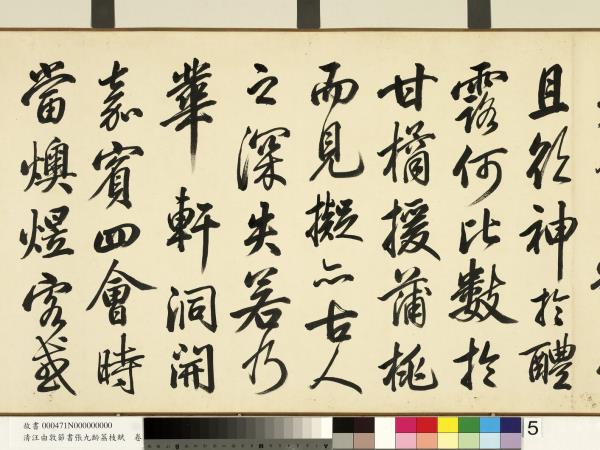 且欲神於醴
露何比數於
甘橘援蒲桃
而見擬亦古人
之深失若乃
華軒洞開
嘉賓四會時
當燠煜客或
故書 000471N000000000
清汪由敦節書張九齡荔枝賦 卷
5